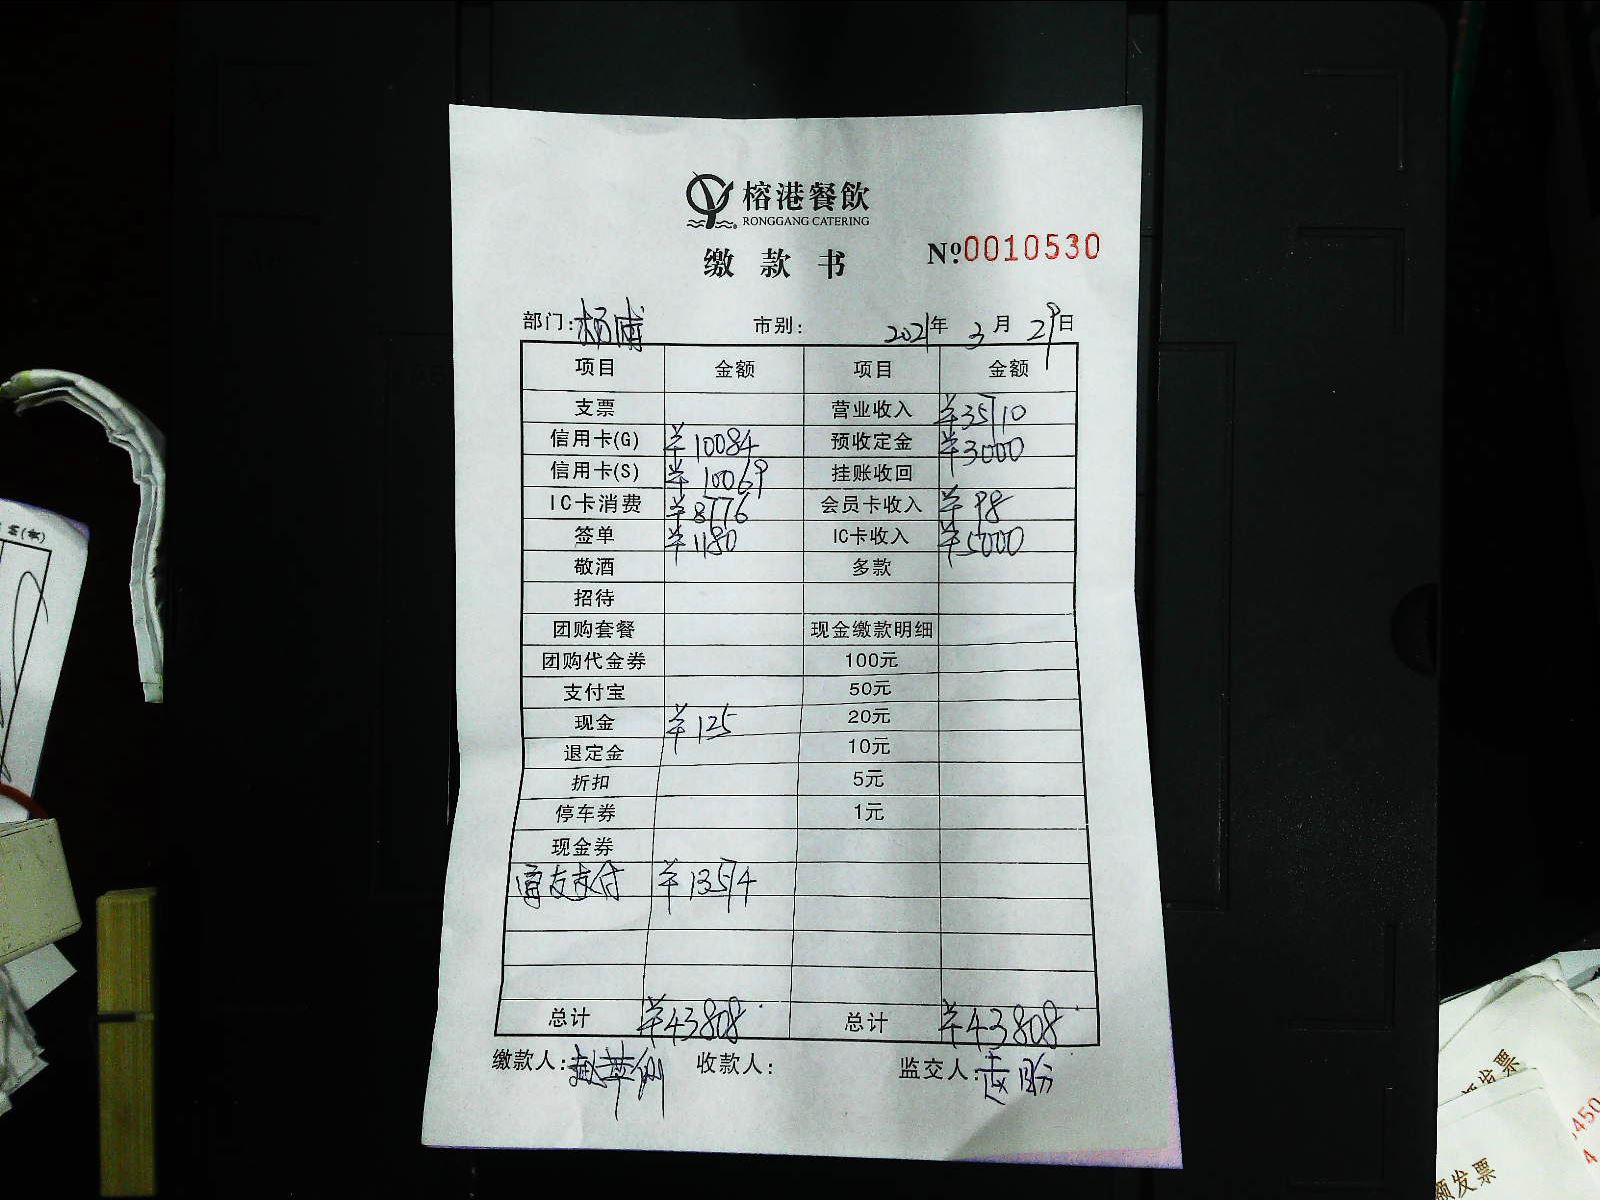 榕港餐飲
RONGGANG CATERING
缴款书 №0010530
部门:杨浦 市别: 2021年 3月 29日
项目 金额 项目 金额
支票 营业收入 ¥35710
信用卡(G) ¥10084 预收定金 ¥3000
信用卡(S) ¥10069 挂账收回
IC卡消费 ¥8776 会员卡收入 ¥98
签单 ¥1180 IC卡收入 ¥5000
敬酒 多款
招待
团购套餐 现金缴款明细
团购代金券 100元
支付宝 50元
现金 ¥125 20元
退定金 10元
折扣 5元
停车券 1元
现金券
富友支付 ¥13574
总计 ¥43808 总计 ¥43808
缴款人: 收款人: 监交人:
发票
450
额发票